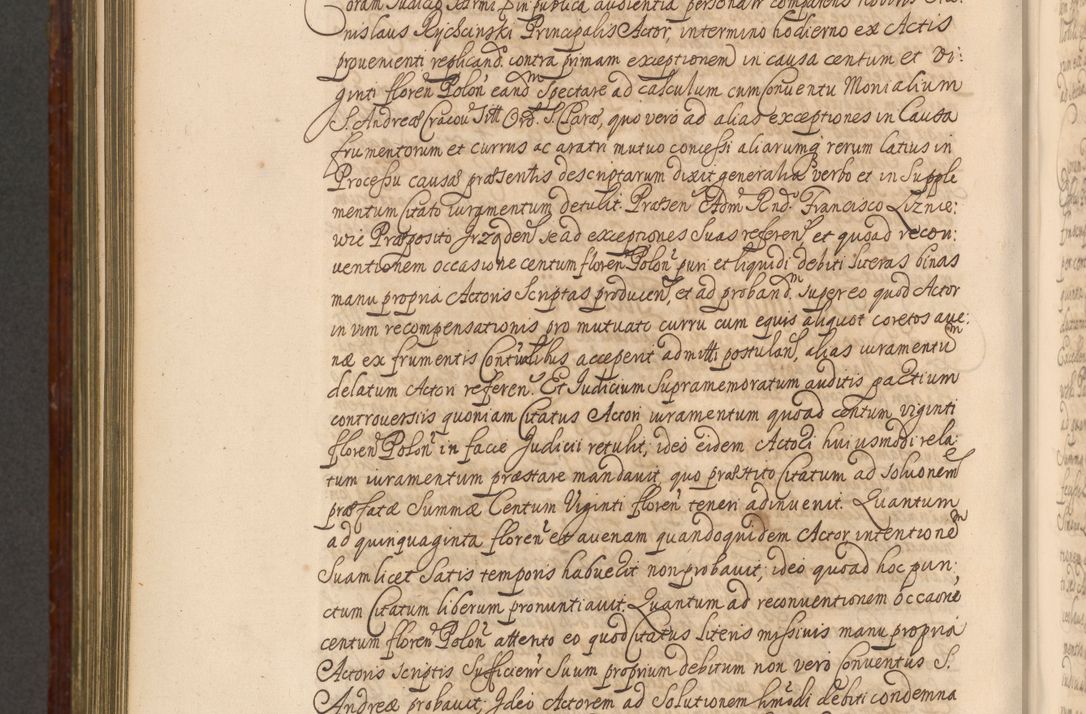 Coram Judicio Sarmi P in publica audientia personalr comparens nobilis Sta
nislaus Rychcinski Principalis Actor, in termino hodierno ex Actis
provenienti replicand. contra primam exceptionem in causa centum et vi:
ginti floren Polon eandm spectare ad calculum cum Conventu Monialium
S. Andreæ Cracov Titt Ord. S. Claræ, quo vero ad alias exceptiones in Causa
frumentorum et currus ac aratri mutuo concessi aliarumq rerum latius in
Processu causæ præsentis descriptarum dixit generalia verbo et in Supple
mentum Citato iuramentum detulit. Præsen Adm Rnd. Francisco Liznie:
wic Præposito Jrządzen se ad exceptiones suas referen, et quoad recon:
ventionem occasione centum floren Polon puri et liquidi debiti literas binas
manu propria Actoris Scriptas producen, et ad proband.m super eo quod Actor
in vim recompensationis pro mutuato curru cum equis aliquot coretos ave:
næ ex frumentis Contualibus acceperit admitti postulan, alias iuramentum
delatum Actori referen. Et Judicium Supramemoratum auditis partium
controversiis quoniam Citatus Actori iuramentum quoad centum viginti
floren Polon in facie Judicii retulit, ideo eidem Actori huiusmodi rela
tum iuramentum præstare mandavit, quo præstito Citatum ad solutionem
præfatæ Summæ Centum Viginti floren teneri adinvenit. Quantum
ad quinquaginta floren et avenam quandoquidem Actor intentionem
Suam licet Satis temporis habuerit non probavit, ideo quoad hoc pun:
ctum Citatum liberum pronuntiavit. Quantum ad reconventionem occaone
centum floren Polon attento eo quod Citatus literis missivis manu propria
Actoris scriptis Sufficienr Suum proprium debitum non vero Conventus S.
Andreæ probavit; Ideo Actorem ad Solutionem hmodi debiti condemna